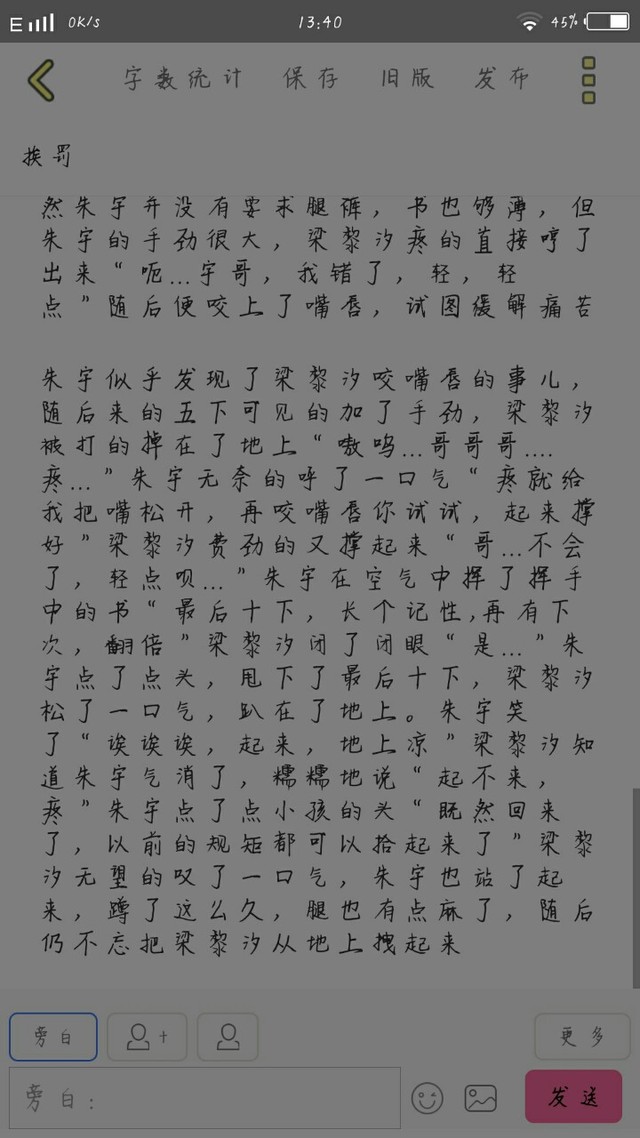 E 0K/s 13:40 45%
字数统计 保存 旧版 发布
挨罚
然朱宇并没有要求腿裤，书也够薄，但
朱宇的手劲很大，梁黎汐疼的直接哼了
出来“呃...宇哥，我错了，轻，轻
点”随后便咬上了嘴唇，试图缓解痛苦
朱宇似乎发现了梁黎汐咬嘴唇的事儿，
随后来的五下可见的加了手劲，梁黎汐
被打的掉在了地上“嗷呜...哥哥哥....
疼...”朱宇无奈的呼了一口气“疼就给
我把嘴松开，再咬嘴唇你试试，起来撑
好”梁黎汐费劲的又撑起来“哥...不会
了，轻点呗...”朱宇在空气中挥了挥手
中的书“最后十下，长个记性,再有下
次，翻倍”梁黎汐闭了闭眼“是...”朱
宇点了点头，甩下了最后十下，梁黎汐
松了一口气，趴在了地上。朱宇笑
了“诶诶诶，起来，地上凉”梁黎汐知
道朱宇气消了，糯糯地说“起不来，
疼”朱宇点了点小孩的头“既然回来
了，以前的规矩都可以拾起来了”梁黎
汐无望的叹了一口气，朱宇也站了起
来，蹲了这么久，腿也有点麻了，随后
仍不忘把梁黎汐从地上拽起来
旁白 + 更多
旁白： 发送